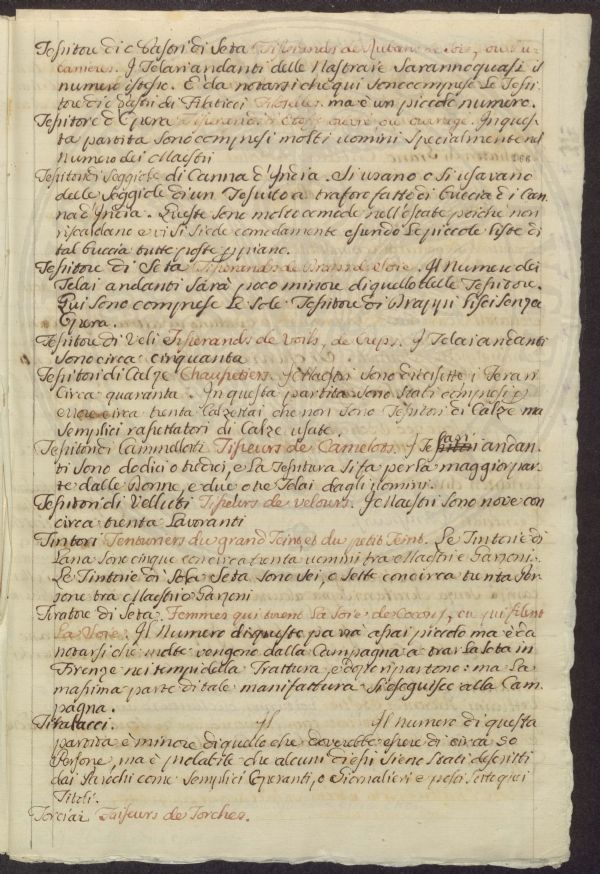 Tessitore di Nastri di Seta Tisserands de Rubans de soie, ou Ru-
banieres. I Telari andanti delle Nastraie saranno quasi il
numero istesso. È da notarsi che qui sono comprese le Tessi-
tore di Nastri di Filaticci Filoselles, ma è un piccolo numero.
Tessitore d'Opera Tisserands d'Etoffe ouvré ou ouvragé. In ques-
ta partita sono compresi molti uomini specialmente nel
numero dei Maestri
Tessitori di Seggiole di Canna d'India. Si usano o si usavano
delle Seggiole di un Tessuto a traforo fatto di buccia di Can-
na d'India. Queste sono molto comode nell'estate poiche non
riscaldano e vi si siede comodamente essendo le piccole liste di
tal buccia tutte poste p piano.
Tessitore di Seta Tisserands de Draps de Soie. Il Numero dei
Telai andanti sarà poco minore di quello delle Tessitore.
Qui sono comprese le sole Tessitore di Drappi lisci senza
Opera.
Tessitore di Veli Tisserands de Voils, de Creps. I Telai andanti
sono circa cinquanta
Tessitori di Calze Chaussetiers. I Maestri sono diecisette i Teran
Circa quaranta. In questa partita sono stati compresi p
errore circa trenta Calzettai, che non sono Tessitori di Calze ma
semplici rassettatori di Calze usate.
Tessitori di Cammellotti Tisseurs de Camelots. I Telari andan-
ti sono dodici o tredici, e la Tessitura si fa per la maggior par-
te dalle Donne, e due o tre Telai dagli Uomini.
Tessitori di Velluti Tisseurs de velours. I Maestri sono nove con
circa trenta Lavoranti
Tintori Tenturiers du grand Teint, et du petit Teint. Le Tintorie di
Lana sono cinque con circa trenta uomini tra Maestri e Garzoni.
Le Tintorie di sola Seta sono sei, o sette con circa trenta Per-
sone trà Maestri e Garzoni
Tiratore di Seta. Femmes qui tirent la Soie de Cocons, ou qui filent
la Soie. Il Numero di queste parrà assai piccolo ma è da
notarsi che molte vengono dalla Campagna a trar la seta in
Firenze nei tempi della Trattura, e dopo ripartono: ma la
massima parte di tale manifattura si eseguisce alla Cam-
pagna.
Tiralacci. Il Il numero di questa
partita è minore di quello che doverebbe essere di circa 50
Persone, ma è probabile che alcuni di essi sieno stati descritti
dai Parochi come semplici Operanti, o Giornalieri e posti sotto quei
Titoli.
Torciai Faiseurs de Torches.